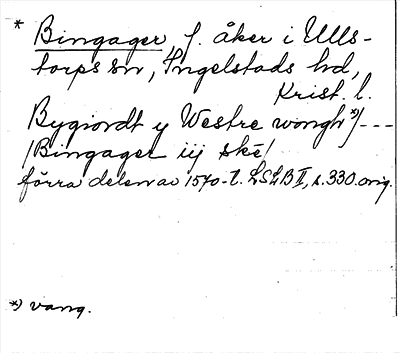 * Bingager, f. åker i Ulls-
torps sn, Ingelstads hd,
Krist. l.
Bygiordt y Westre wongh *) ---
/Bingager iij skē/
förra delen av 1570-t. LSLB II, s. 330. orig.
*) vang.